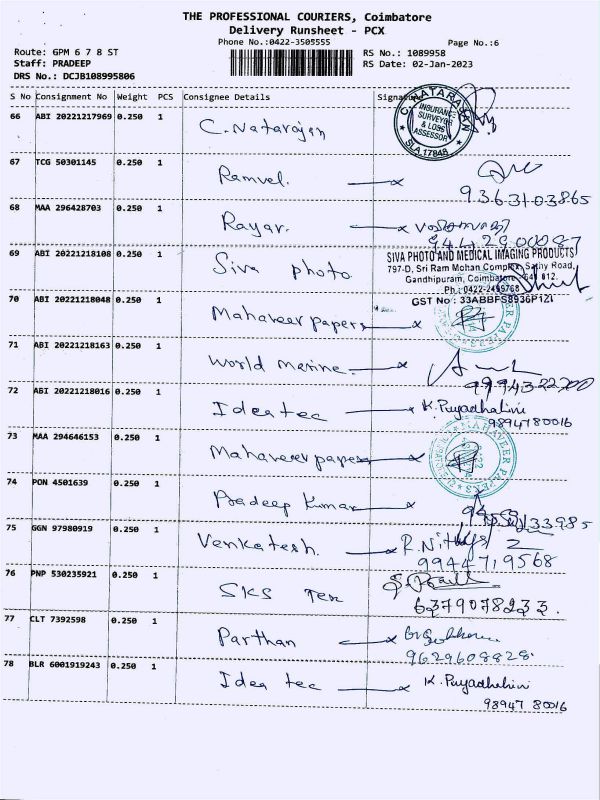 THE PROFESSIONAL COURIERS, Coimbatore
Delivery Runsheet - PCX
Phone No.:0422-3505555
Page No.:6
Route: GPM 6 7 8 ST
Staff: PRADEEP
DRS No.: DCJB108995806
RS No.: 1089958
RS Date: 02-Jan-2023
S No Consignment No Weight PCS Consignee Details Signature
66 ABI 20221217969 0.250 1 C. Natarajan
C. NATARAJAN
INSURANCE
SURVEYOR
& LOSS
ASSESSOR
SLA.17848
67 TCG 50301145 0.250 1 Ramvel.
9363103865
68 MAA 296428703 0.250 1 Rayar.
69 ABI 20221218108 0.250 1 Siva photo
SIVA PHOTO AND MEDICAL IMAGING PRODUCTS
797-D, Sri Ram Mohan Complex, Sathy Road,
Gandhipuram, Coimbatore - 641 012.
Ph: 0422-2499768
GST No : 33ABBFS8936P1ZI
70 ABI 20221218048 0.250 1 Mahaveer papers
71 ABI 20221218163 0.250 1 World marine
9994322700
72 ABI 20221218016 0.250 1 Idea tec K. Priyadhalini
9894780016
73 MAA 294646153 0.250 1 Mahaveer papers
MAHAVEER PAPERS
74 PON 4501639 0.250 1 Pradeep Kumar
75 GGN 97980919 0.250 1 Venkatesh. R. Nithya
9944719568
76 PNP 530235921 0.250 1 SKS Tex
6379078233.
77 CLT 7392598 0.250 1 Parthan
9629608828
78 BLR 6001919243 0.250 1 Idea tec K. Priyadhalini
98947 80016